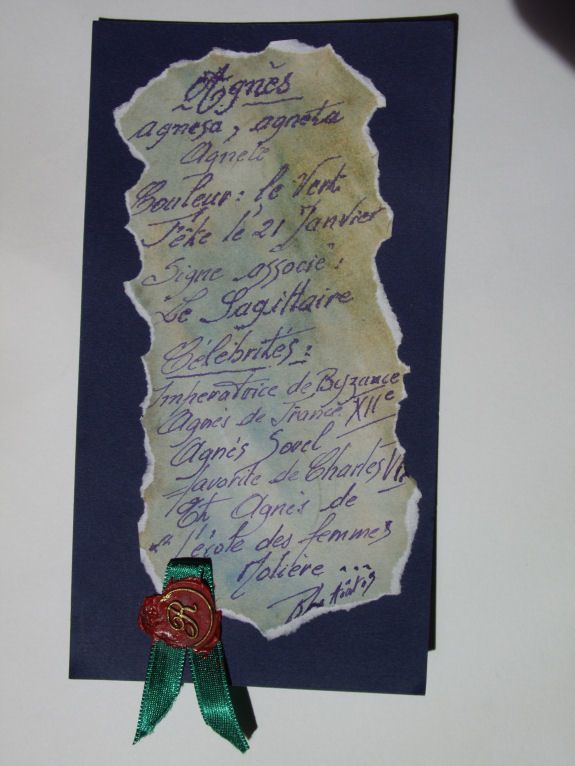 Agnès
agnesa, agneta
Agnete
Couleur: le Vert
Fête le 21 Janvier
Signe associé:
Le Sagittaire
Célébrités:
Imperatrice de Byzance
Agnès de France XIIe
Agnès Sorel
favorite de Charles VII
Et Agnès de
"l'école des femmes
Molière ...
R